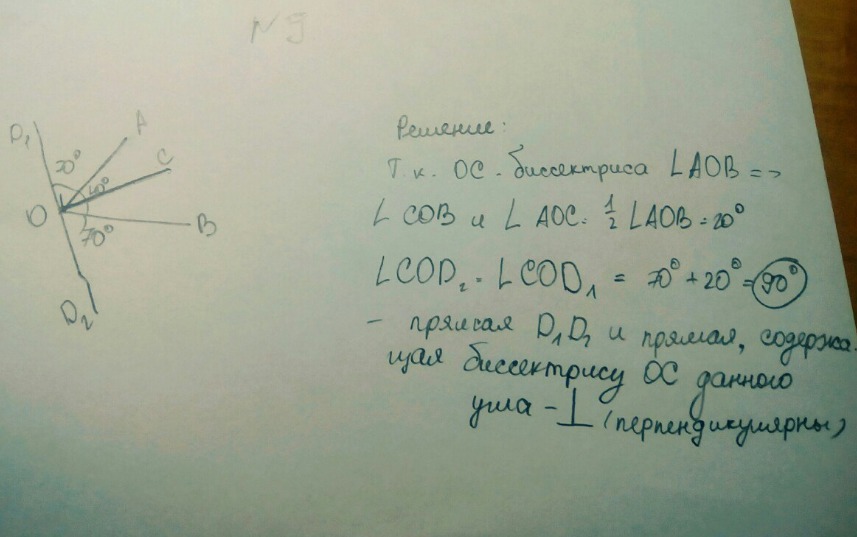 № 9
D₁
A
20°
C
40°
O
70°
B
D₂
Решение:
Т.к. OC - биссектриса ∠AOB =>
∠COB и ∠AOC = 1/2 ∠AOB = 20°
∠COD₂ = ∠COD₁ = 70° + 20° = 90°
- прямая D₁D₂ и прямая, содержа-
щая биссектрису OC данного
угла - ⊥ (перпендикулярны)